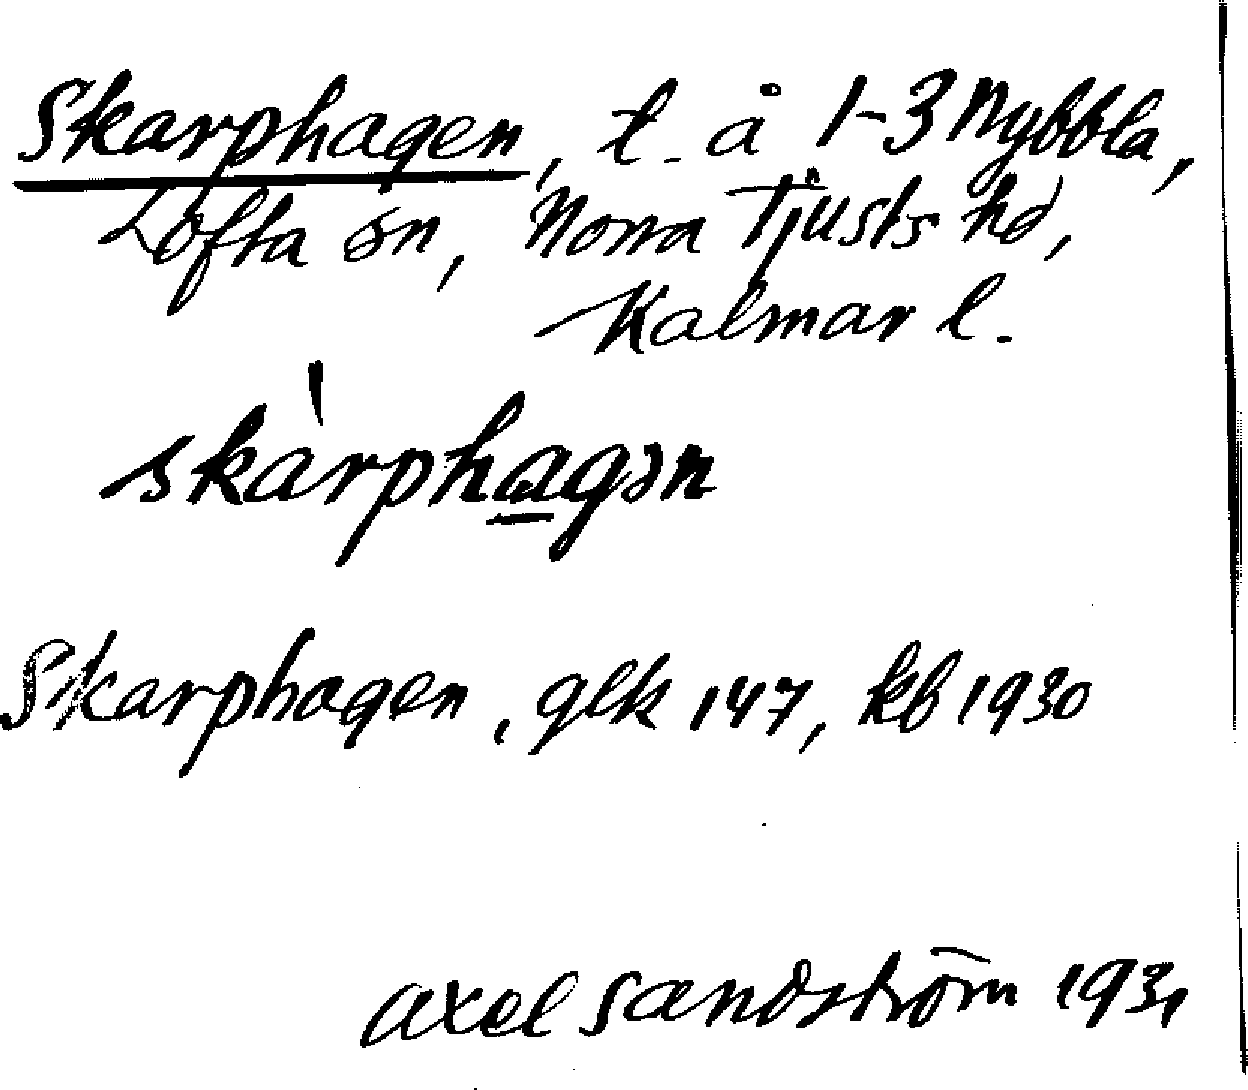 Skarphagen, t. å 1-3 Nybbla,
Lofta sn, Norra Tjusts hd,
Kalmar l.
skàrphagən
Skarphagen, glk 147, kb 1930
Axel Sandström 1931